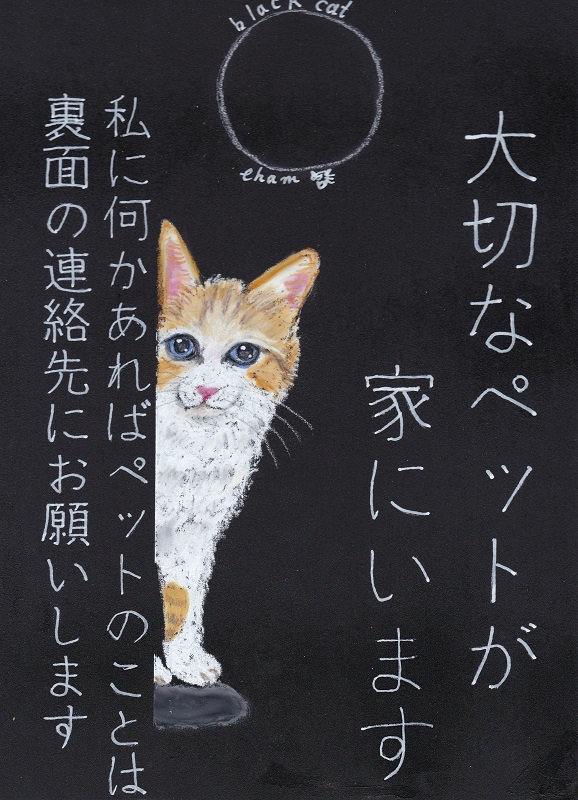 black cat
cham
大切なペットが
家にいます
私に何かあればペットのことは
裏面の連絡先にお願いします